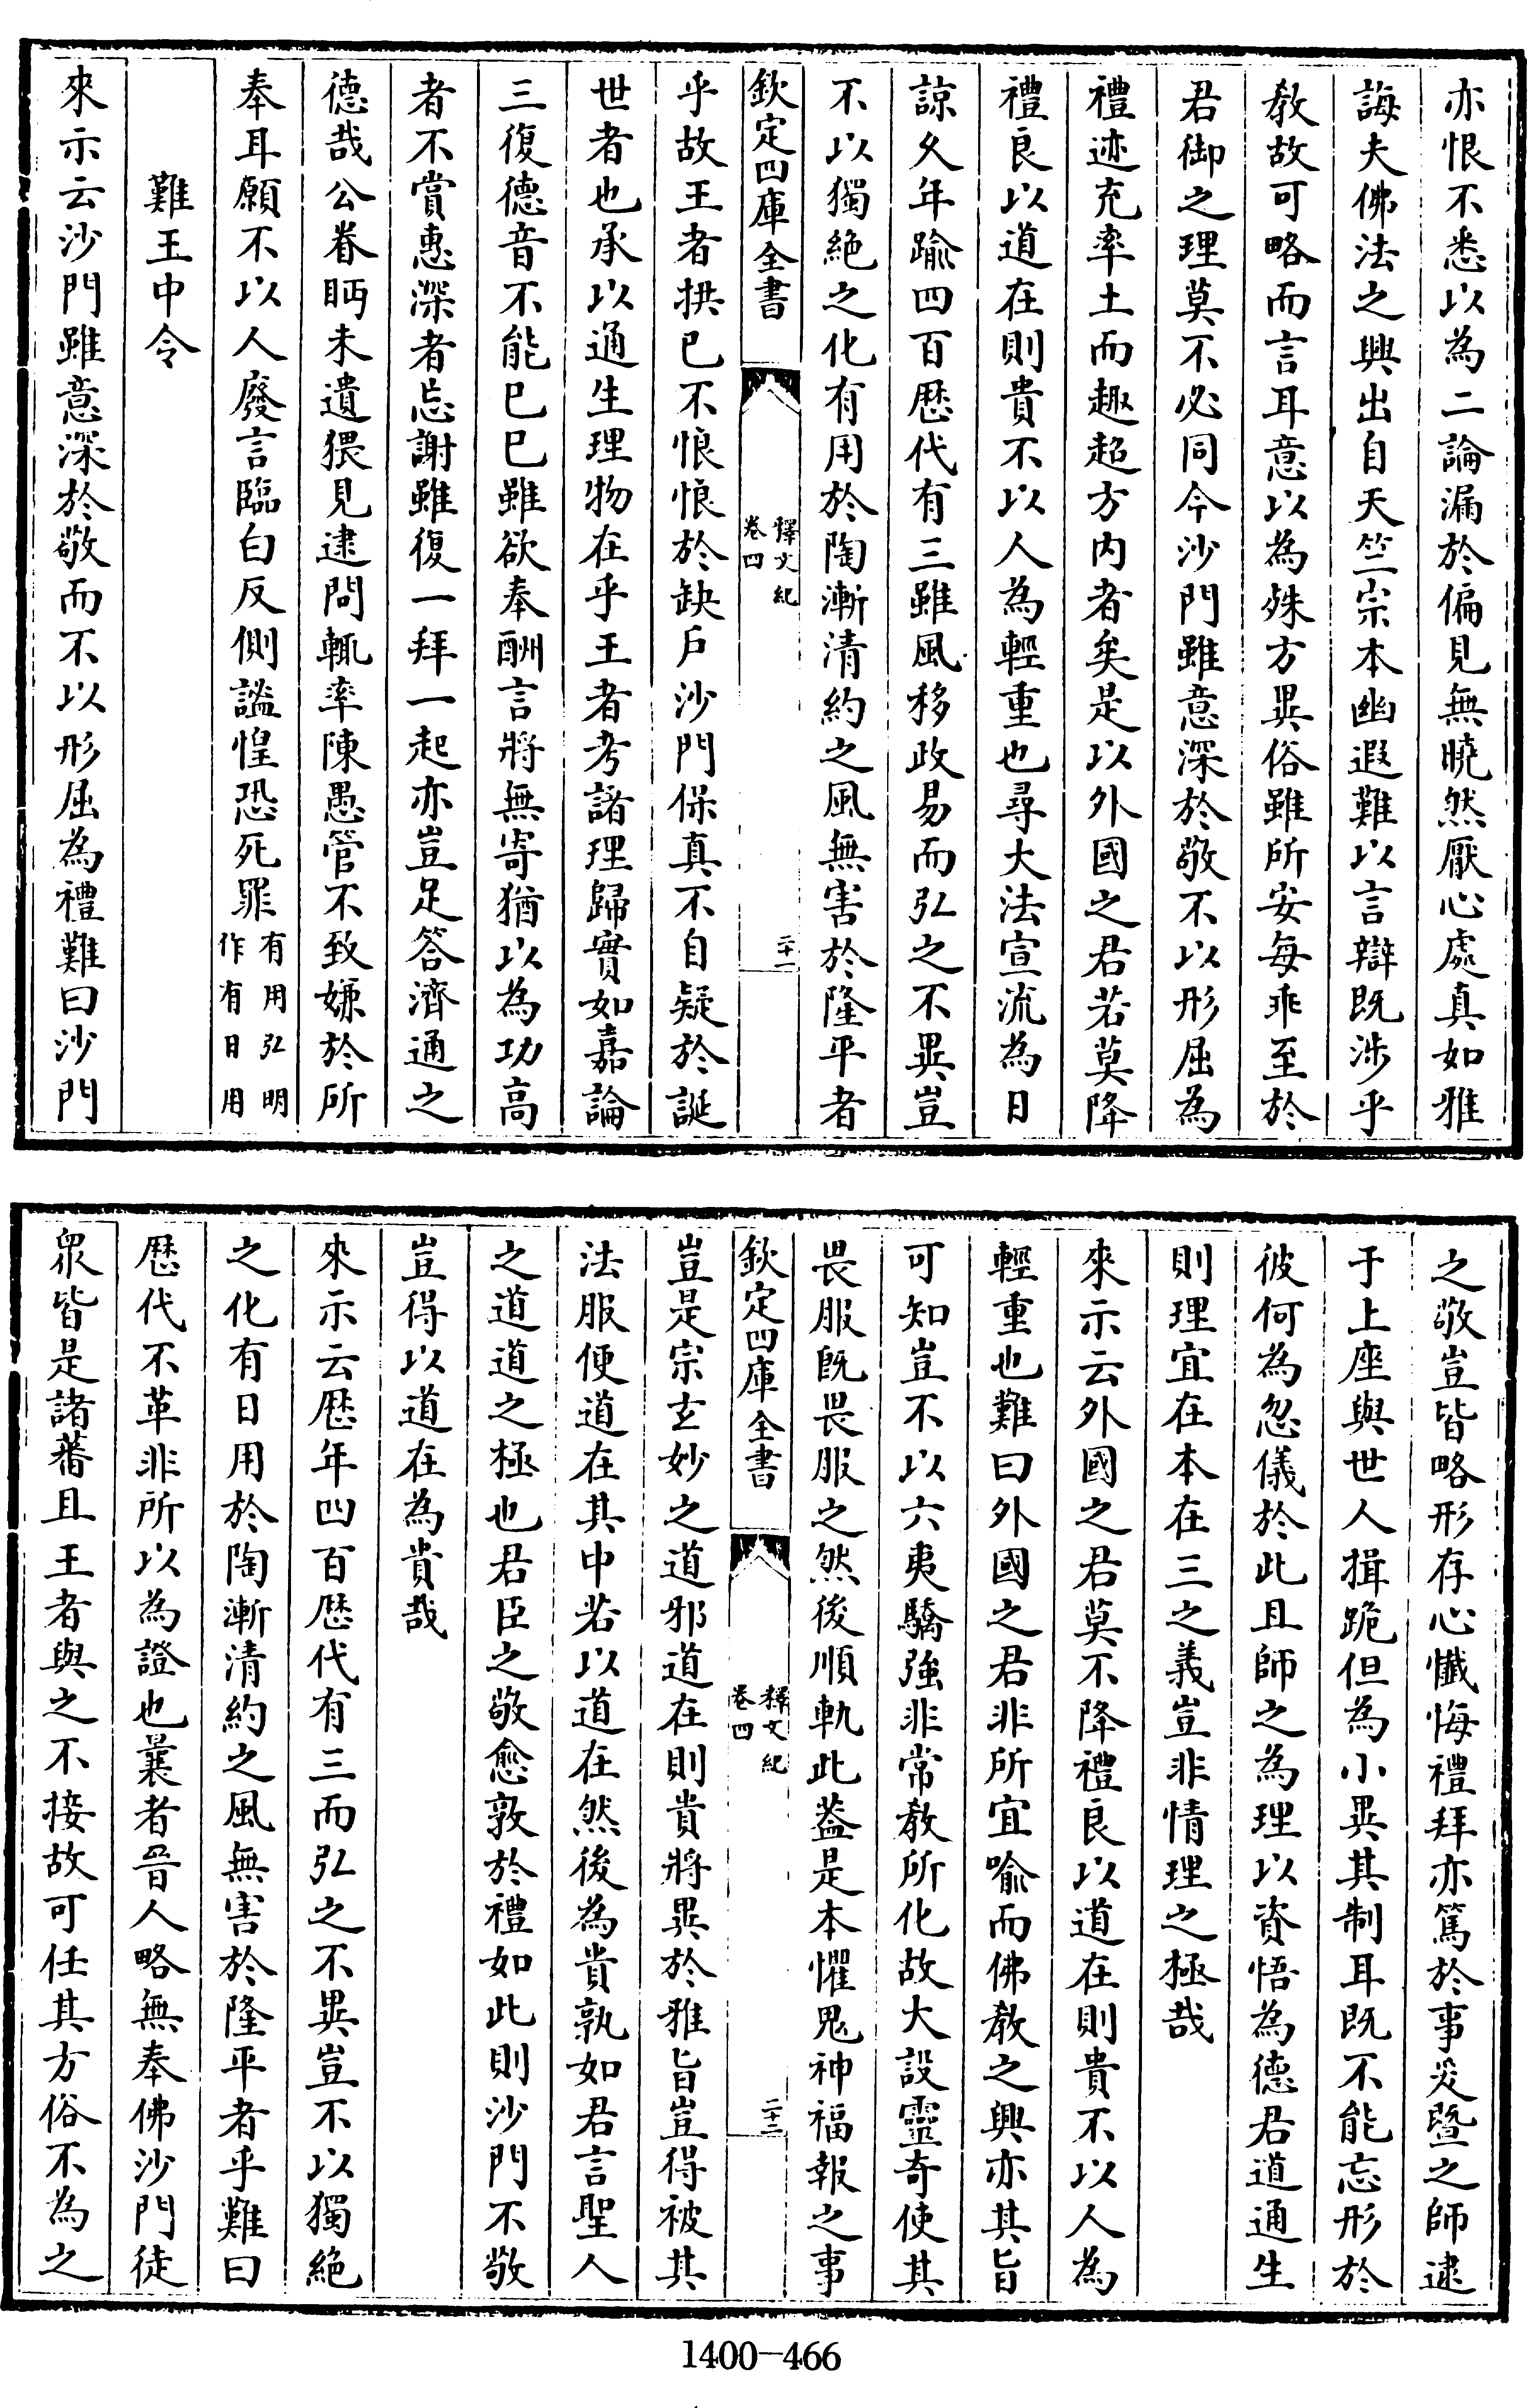 亦恨不悉以為二論漏於偏見無曉然厭心處真如雅
誨夫佛法之興出自天竺宗本幽遐難以言辯既渉乎
教故可略而言耳意以為殊方異俗雖所安每乖至於
君御之理莫不必同今沙門雖意深於敬不以形屈為
禮迹充率土而趣超方内者矣是以外國之君若莫降
禮良以道在則貴不以人為輕重也尋大法宣流為日
諒久年踰四百歴代有三雖風移政易而弘之不異豈
不以獨絶之化有用於陶漸清約之風無害於隆平者
欽定四庫全書
釋文紀
卷四
二十一
乎故王者拱已不恨恨於缺戶沙門保真不自疑於誕
世者也承以通生理物在乎王者考諸理歸實如嘉論
三復德音不能已已雖欲奉酬言將無寄猶以為功高
者不賞惠深者忘謝雖復一拜一起亦豈足答濟通之
德哉公眷眄未遺猥見逮問輒率陳愚管不致嫌於所
奉耳願不以人廢言臨白反側謐惶恐死罪有用弘明作有日用
難王中令
來示云沙門雖意深於敬而不以形屈為禮難曰沙門
之敬豈皆略形存心懺悔禮拜亦篤於事爰暨之師逮
于上座與世人揖跪但為小異其制耳既不能忘形於
彼何為忽儀於此且師之為理以資悟為德君道通生
則理宜在本在三之義豈非情理之極哉
來示云外國之君莫不降禮良以道在則貴不以人為
輕重也難曰外國之君非所宜喻而佛教之興亦其旨
可知豈不以六夷驕強非常教所化故大設靈奇使其
畏服既畏服之然後順軌此蓋是本懼鬼神福報之事
欽定四庫全書
釋文紀
卷四
二十二
豈是宗玄妙之道邪道在則貴將異於雅旨豈得被其
法服便道在其中若以道在然後為貴孰如君言聖人
之道道之極也君臣之敬愈敦於禮如此則沙門不敬
豈得以道在為貴哉
來示云歴年四百歴代有三而弘之不異豈不以獨絶
之化有日用於陶漸清約之風無害於隆平者乎難曰
歴代不革非所以為證也曩者晉人略無奉佛沙門徒
衆皆是諸蕃且王者與之不接故可任其方俗不為之
1400—466